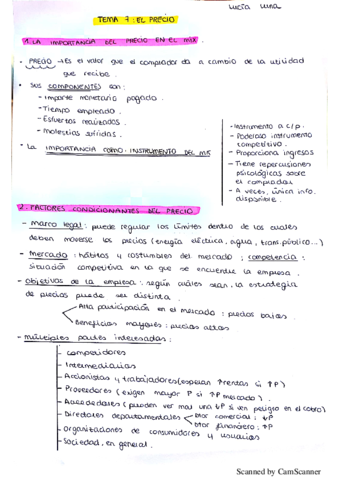 Lucía Luna
TEMA 7: EL PRECIO
1. LA IMPORTANCIA DEL PRECIO EN EL MIX.
• PRECIO → Es el valor que el comprador da a cambio de la utilidad
que recibe.
• Sus COMPONENTES son:
- Importe monetario pagado.
- Tiempo empleado.
- Esfuerzos realizados.
- Molestias sufridas.
• La IMPORTANCIA COMO INSTRUMENTO DEL MIX
- Instrumento a c/p.
- Poderoso instrumento
competitivo.
- Proporciona ingresos
- Tiene repercusiones
psicológicas sobre
el comprador.
- A veces, única info.
disponible.
2. FACTORES CONDICIONANTES DEL PRECIO.
- Marco legal: puede regular los límites dentro de los cuales
deben moverse los precios (energía eléctrica, agua, trans.público...)
- Mercado: hábitos y costumbres del mercado; competencia:
situación competitiva en la que se encuentre la empresa.
- Objetivos de la empresa: según cuáles sean, la estrategia
de precios puede ser distinta.
Alta participación en el mercado: precios bajos.
Beneficios mayores: precios altos
- Múltiples partes interesadas:
- Competidores
- Intermediarios
- Accionistas y trabajadores (esperan ↑rentas si ↑P)
- Proveedores (exigen mayor P si ↑P mercado)
- Acreedores (pueden ver mal una ↓P si ven peligro en el cobro)
- Directores departamentales
Dtor comercial: ↓P
Dtor financiero: ↑P
- Organizaciones de consumidores y usuarios
- Sociedad, en general.
Scanned by CamScanner